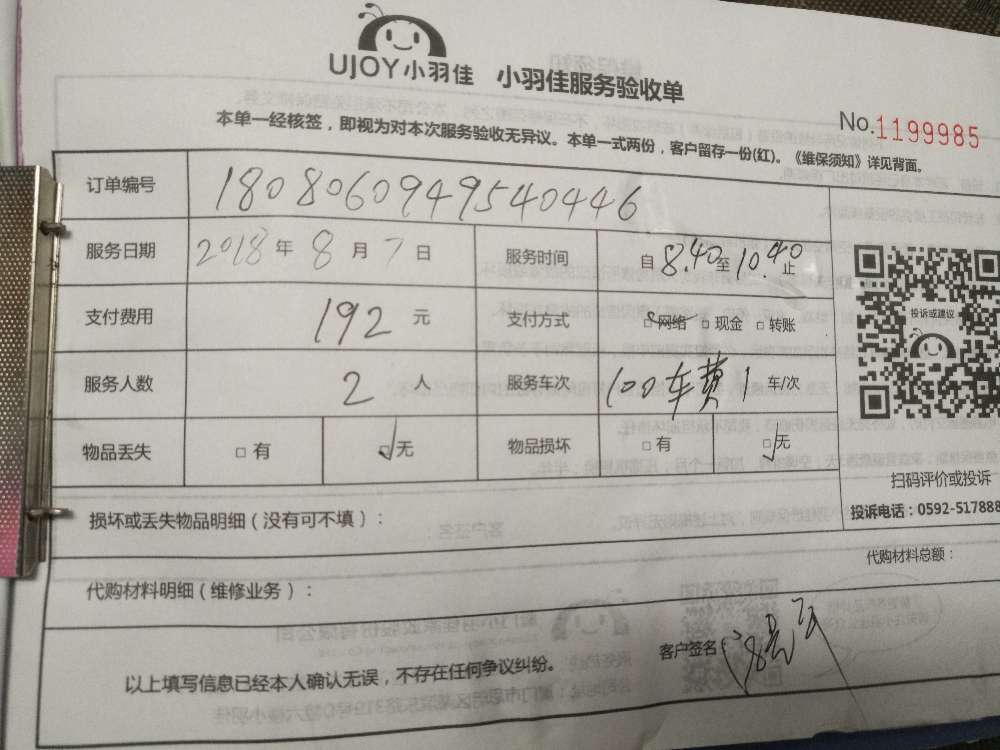 UJOY小羽佳 小羽佳服务验收单
No.1199985
本单一经核签，即视为对本次服务验收无异议。本单一式两份，客户留存一份(红)。《维保须知》详见背面。
订单编号 1808060949540446
服务日期 2018年8月7日 服务时间 自8.40至10.40止
支付费用 192元 支付方式 □网络 □现金 □转账
服务人数 2人 服务车次 100车费1车/次
物品丢失 □有 ☑无 物品损坏 □有 ☑无
投诉或建议
扫码评价或投诉
投诉电话：0592-517888
损坏或丢失物品明细（没有可不填）：
代购材料明细（维修业务）：
代购材料总额：
以上填写信息已经本人确认无误，不存在任何争议纠纷。
客户签名：